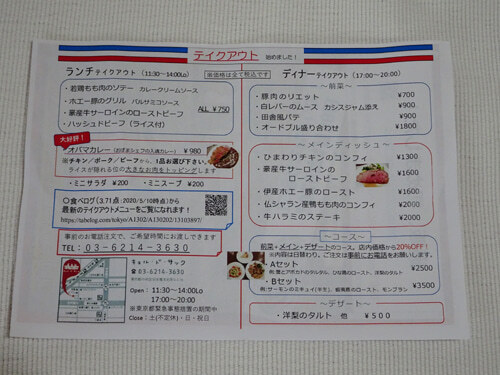 テイクアウト 始めました！
ランチテイクアウト（11:30～14:00Lo）
※価格は全て税込です
・若鶏もも肉のソテー カレークリームソース
・ホエー豚のグリル バルサミコソース
・豪産牛サーロインのローストビーフ
・ハッシュドビーフ（ライス付）
ALL ¥750
大好評！
・オバマカレー ¥980
※チキン／ポーク／ビーフから、1品お選び下さい。
ライスが隠れる位の大きなお肉をトッピングします
・ミニサラダ ¥200 ・ミニスープ ¥200
○食べログ（3.71点：2020/5/10時点）から
最新のテイクアウトメニューをご覧になれます！
https://tabelog.com/tokyo/A1302/A130202/13103897/
事前のお電話注文で、ご希望時間にお渡しできます
TEL：03-6214-3630
03-6214-3630
Open：11:30～14:00Lo
17:00～20:00
※東京都緊急事態措置の期間中
Close：土(不定休)・日・祝日
ディナーテイクアウト（17:00～20:00）
～前菜～
・豚肉のリエット ¥700
・白レバーのムース カシスジャム添え ¥900
・田舎風パテ ¥900
・オードブル盛り合わせ ¥1800
～メインディッシュ～
・ひまわりチキンのコンフィ ¥1300
・豪産牛サーロインの
ローストビーフ ¥1600
・伊産ホエー豚のロースト ¥1600
・仏シャラン産鴨もも肉のコンフィ ¥2000
・牛ハラミのステーキ ¥2000
～コース～
前菜・メイン・デザートのコース。店内価格から20%OFF！
※内容は日替わり、ご注文は事前にお電話をお願いします。
・Aセット ¥2500
例:蟹とアボカドのタルタル、ひな鳥のロースト、洋梨のタルト
・Bセット ¥3500
例:サーモンのミキュイ(半生)、蝦夷鹿のロースト、モンブラン
～デザート～
・洋梨のタルト 他 ¥500